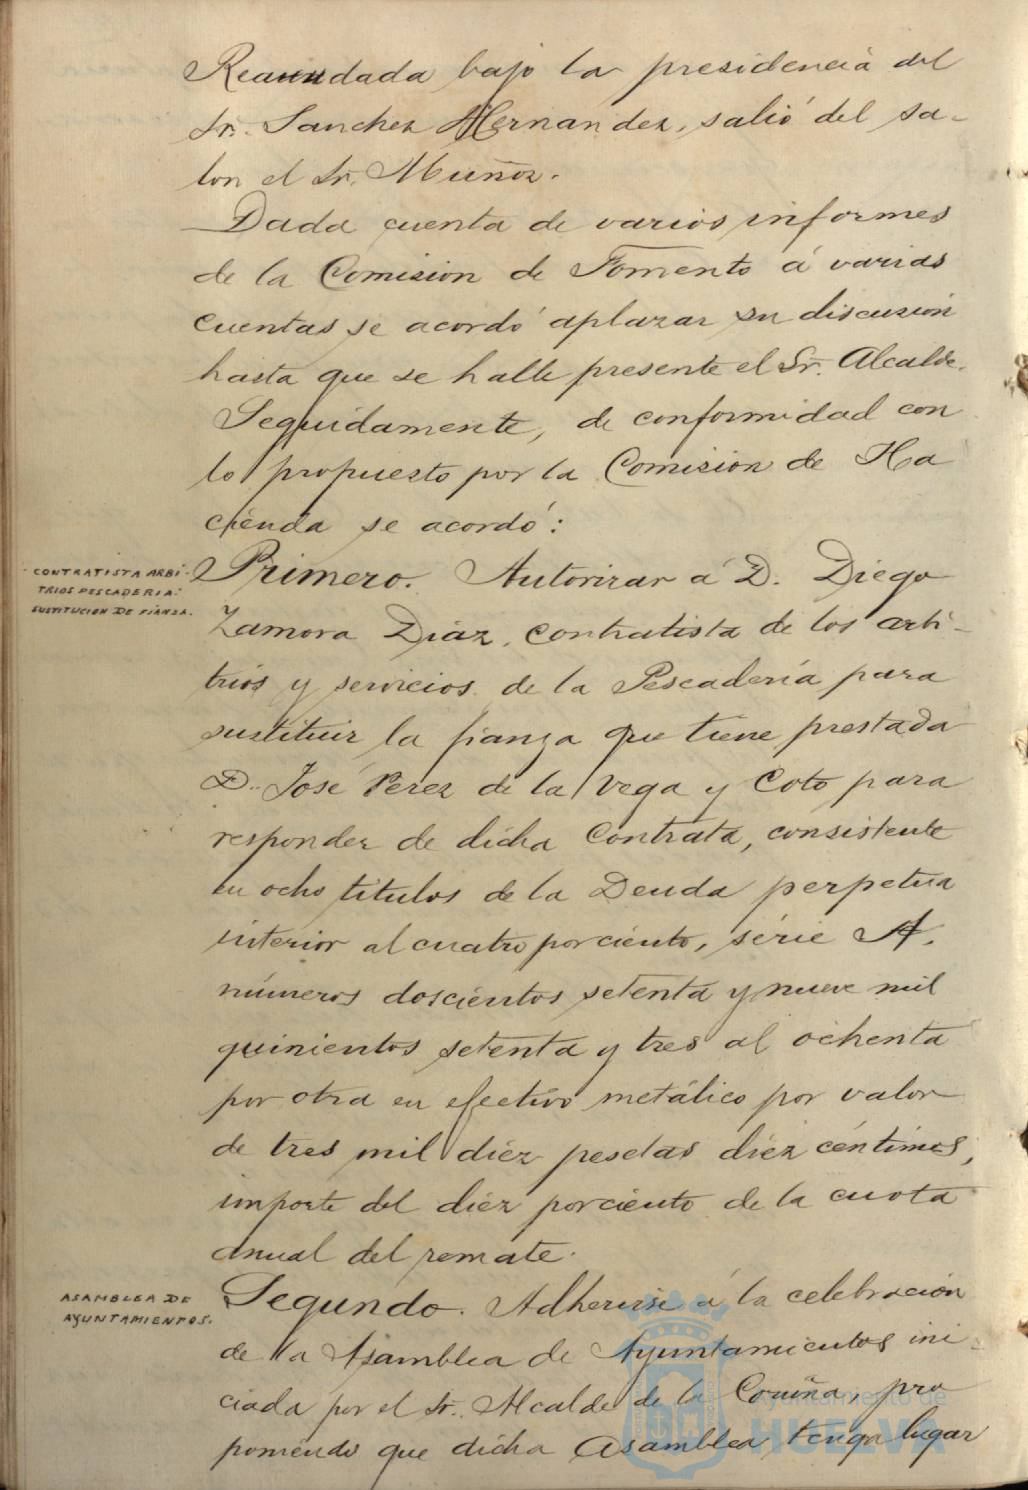 Reanudada bajo la presidencia del
Sr. Sanchez Hernandez, salió del sa-
lon el Sr. Muñoz.
Dada cuenta de varios informes
de la Comision de Fomento á varias
cuentas se acordó aplazar su discusion
hasta que se halle presente el Sr. Alcalde.
Seguidamente, de conformidad con
lo propuesto por la Comision de Ha
cienda se acordó:
CONTRATISTA ARBI-
TRIOS PESCADERIA:
SUSTITUCION DE FIANZA.
Primero. Autorizar á D. Diego
Zamora Diaz, contratista de los arbi-
trios y servicios de la Pescadería para
sustituir la fianza que tiene prestada
D. José Perez de la Vega y Coto para
responder de dicha Contrata, consistente
en ocho titulos de la Deuda perpetua
interior al cuatro por ciento, série A.
números doscientos setenta y nueve mil
quinientos setenta y tres al ochenta
por otra en efectivo metálico por valor
de tres mil diez pesetas diez centimos,
importe del diez por ciento de la cuota
anual del remate.
ASAMBLEA DE
AYUNTAMIENTOS.
Segundo. Adherirse á la celebracion
de la Asamblea de Ayuntamientos ini-
ciada por el Sr. Alcalde de la Coruña, pro
poniendo que dicha Asamblea tenga lugar
Ayuntamiento de
HUELVA